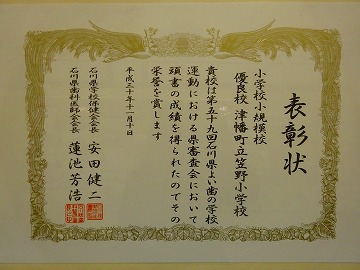 表彰状
小学校小規模校
優良校 津幡町立笠野小学校
貴校は第五十九回石川県よい歯の学校
運動における県審査会において
頭書の成績を得られたのでその
栄誉を賞します
平成三十年十一月十日
石川県学校保健会会長 安田健二
石川県歯科医師会会長 蓮池芳浩